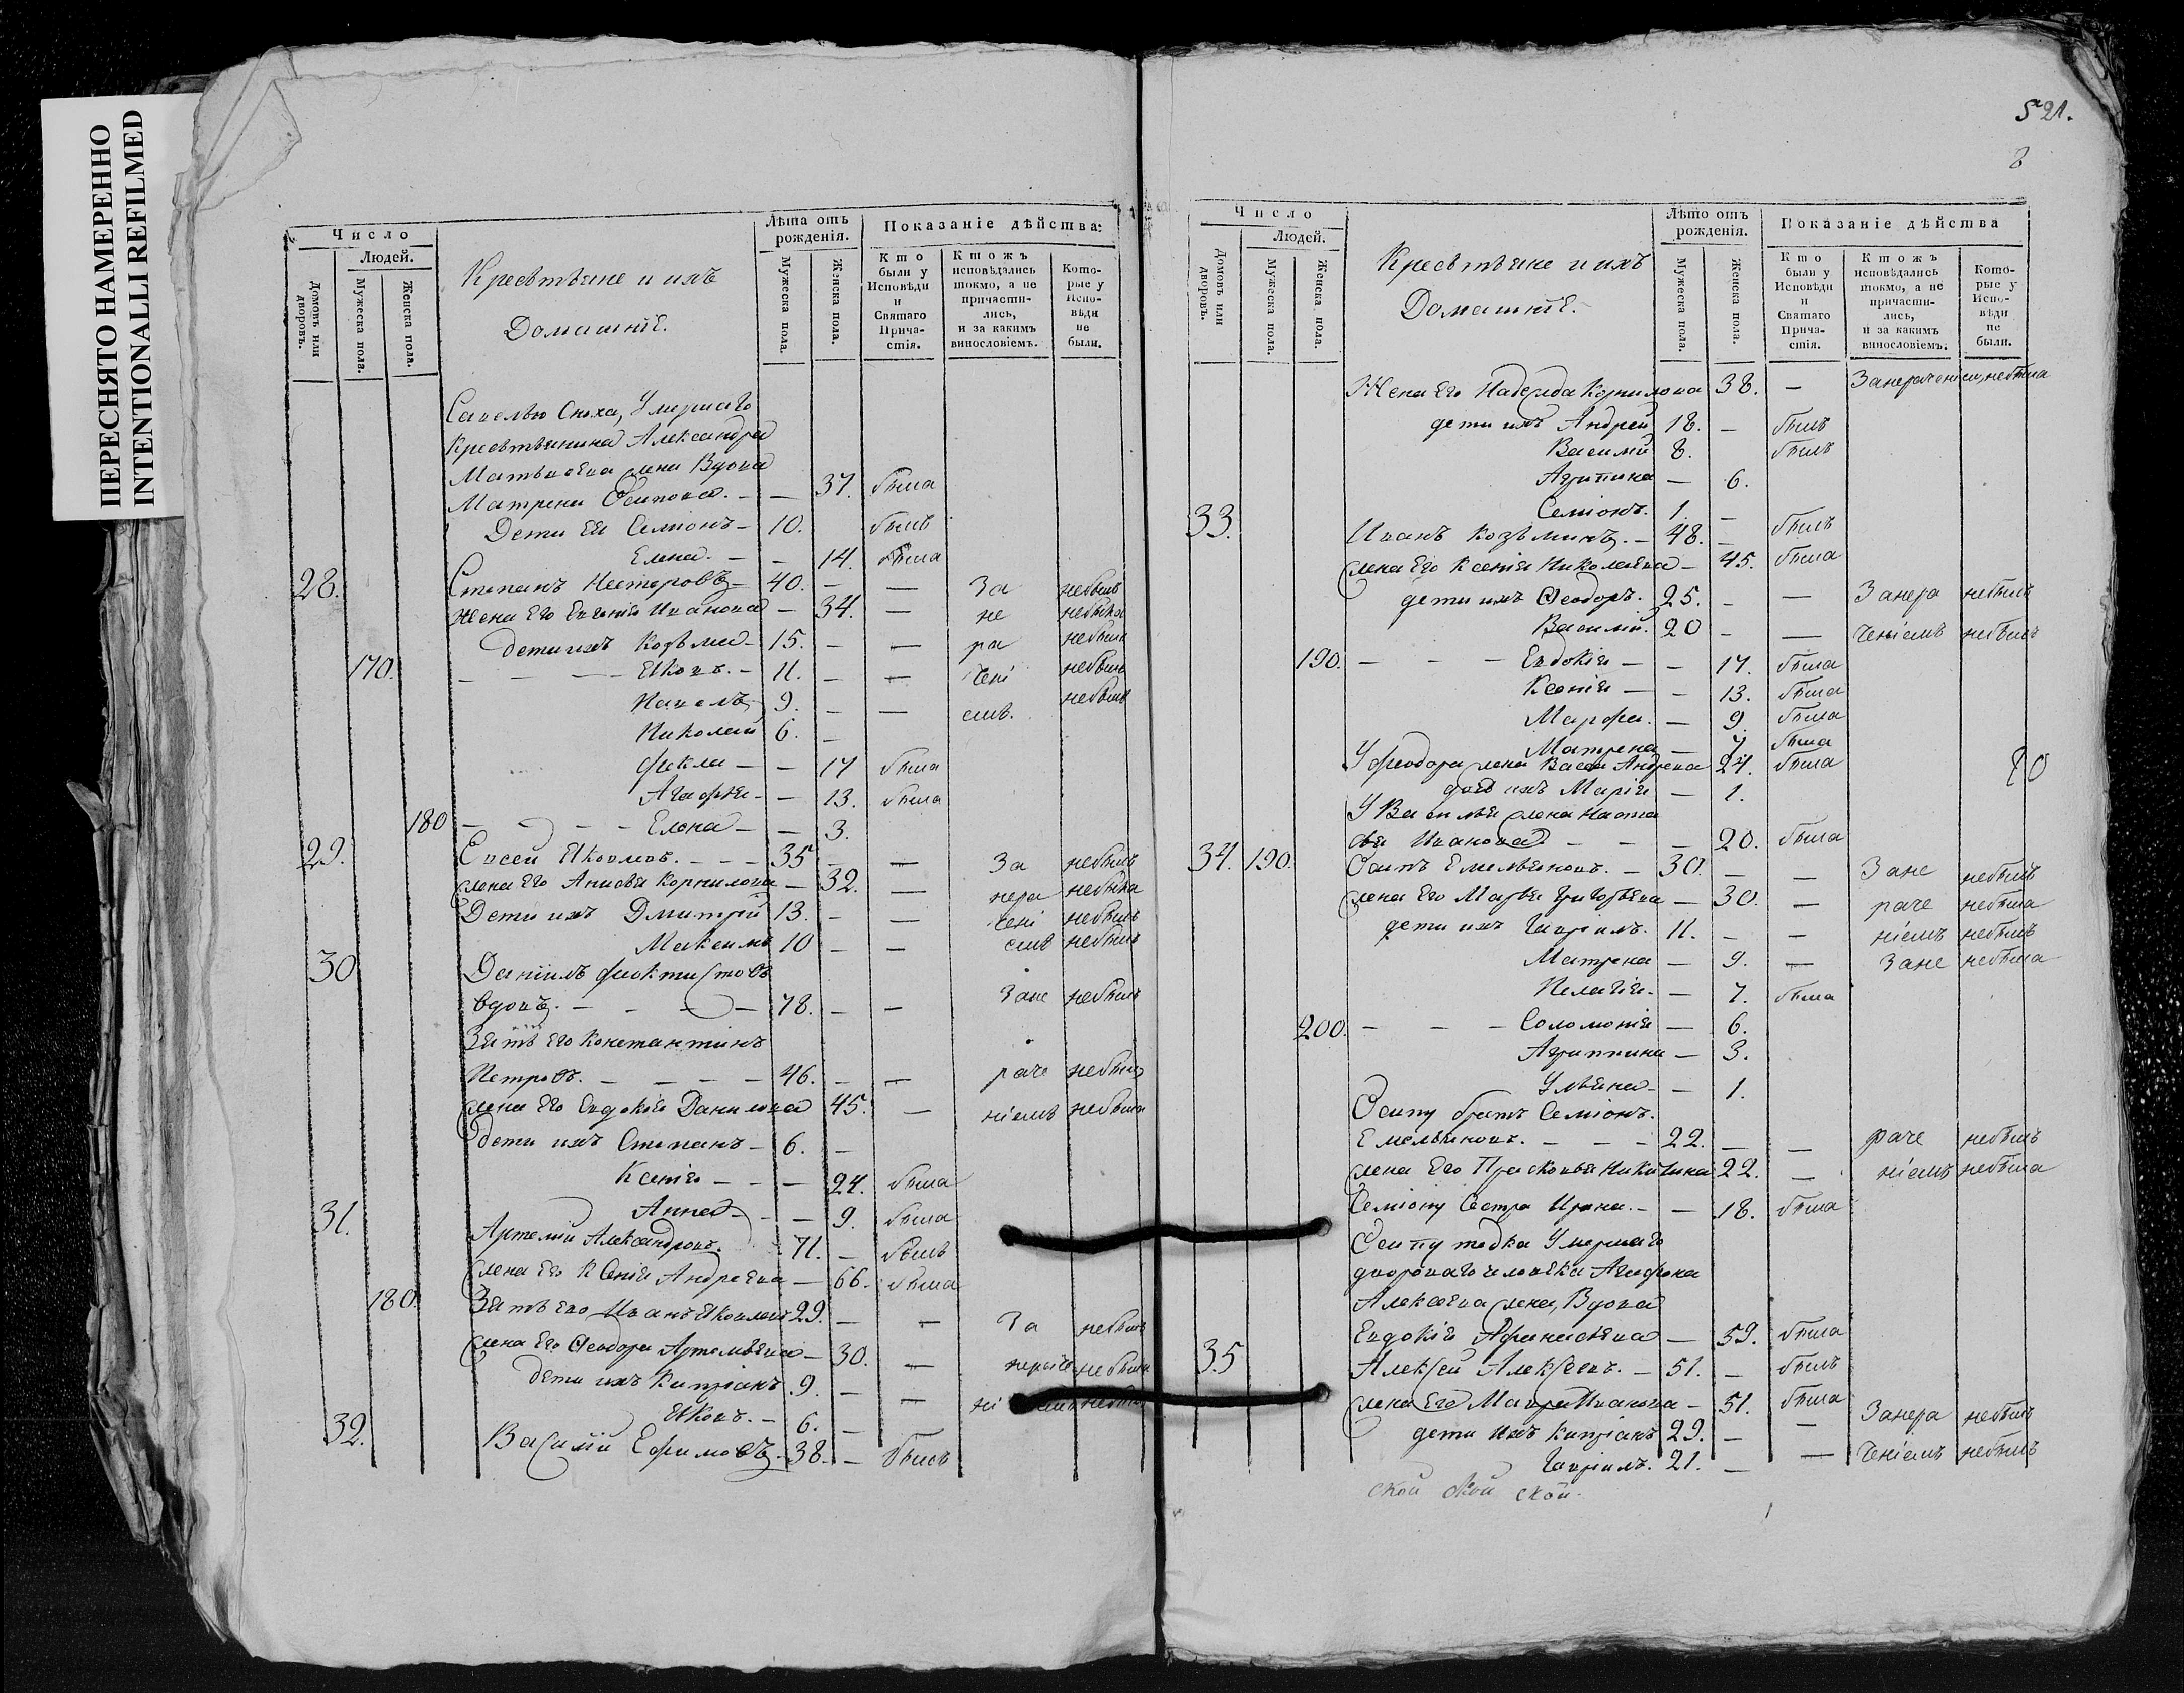 ПЕРЕСНЯТО НАМЕРЕННО
INTENTIONALLI REFILMED
Число
Людей.
Домовъ или дворовъ.
Мужеска пола.
Женска пола.
Крестьяне и ихъ
Домашніе.
Лѣта отъ рожденія.
Мужеска пола.
Женска пола.
Показаніе дѣйства:
Кто были у Исповѣди и Святаго Причастія.
Ктожъ исповѣдались токмо, а не причастились, и за какимъ винословіемъ.
Которые у Исповѣди не были.
Савелью Сноха, Умершаго
Крестьянина Александра
Матвѣева жена Вдова
Матрена Осипова. - — 37. была
Дети Ея Семіонъ - 10. былъ
Елена. - - 14. была
28. Степанъ Нестеровъ - 40. - — За небылъ
Жена Его Евгенія Иванова - 34. — не небыла
дети ихъ Козьма - 15. - — ра небылъ
170. - - - Яковъ. - 11. - — чені небылъ
Павелъ 9. - — емъ. небылъ
Николай 6. -
Фекла - - 17 была
Агафья - - 13. была
180 - - - - Елена - - 3.
29. Евсей Яковлевъ. - - - 35 - — За небылъ
жена Его Анисья Корнилова - 32. — нера небыла
Дети ихъ Дмитрій 13. - — чені небылъ
Максимъ 10 - — емъ небылъ
30 Даніилъ Феоктистовъ
вдовъ. - - - - 78. - — Зане небылъ
Зять его Константинъ
Петровъ. - - - - 46. - — раче небылъ
жена Его Евдокія Данилова 45. — ніемъ небыла
дети ихъ Степанъ - 6. -
Ксенія - - - 24. была
Анна - - - 9. была
31. Артемій Александровъ. - 71. - былъ
жена Его Ксенія Андреева - 66. была
180. Зять его Иванъ Яковлевъ 29. - — За небылъ
жена Его Феодора Артемьева - 30. — нераче небыла
дети ихъ Кипріанъ 9. - — ні
Яковъ. - 6. -
32. Василій Ефимовъ - 38. - былъ
521.
8
Число
Людей.
Домовъ или дворовъ.
Мужеска пола.
Женска пола.
Крестьяне и ихъ
Домашніе.
Лѣто отъ рожденія.
Мужеска пола.
Женска пола.
Показаніе дѣйства
Кто были у Исповѣди и Святаго Причастія.
Ктожъ исповѣдались токмо, а не причастились, и за какимъ винословіемъ.
Которые у Исповѣди не были.
Жена Его Надежда Корнилова 38. — Занераченіем небыла
дети ихъ Андрей 18. - былъ
Василій 8. былъ
Агрипина — 6.
Семіонъ. 1. -
33. Иванъ Козьминъ. - 48. - былъ
жена Его Ксенія Николаева - 45. была
дети ихъ Феодоръ. 25. - — Занера небылъ
Василій. 20 - — ченіемъ небылъ
190. - - - Евдокія - - 17. была
Ксенія - - 13. была
Марфа. — 9. была
Матрена — 7. была
У Феодора жена Васса Андреева 24. была
дочь ихъ Марія — 1.
80
У Василья жена Наста
сья Иванова - - - 20. была
34. 190. Осипъ Емельяновъ. - 30. - — Зане небылъ
жена Его Марья Григорьева — 30. — раче небыла
дети ихъ Гавриилъ. 11. - — ніемъ небылъ
Матрена — 9. — Зане небыла
Пелагія. — 7. была
200. - - - Соломонія — 6.
Агриппина — 3.
Ульяна - — 1.
Осипу братъ Семіонъ.
Емельяновъ. - - - 22. - — раче небылъ
жена Его Прасковья Никитина 22. — ніемъ небыла
Семіону Сестра Ирина. - — 18. была
Осипу тетка Умершаго
двороваго человека Агафона
Алексеева жена, Вдова
Евдокія Афанасьева — 59. была
35 Алексей Алексеевъ. - 51. - былъ
жена Его Мавра Иванова - 51. была
дети ихъ Кипріанъ 29. - — Занера небылъ
Гавриилъ. 21. - — ченіемъ небылъ
ской ской ской.